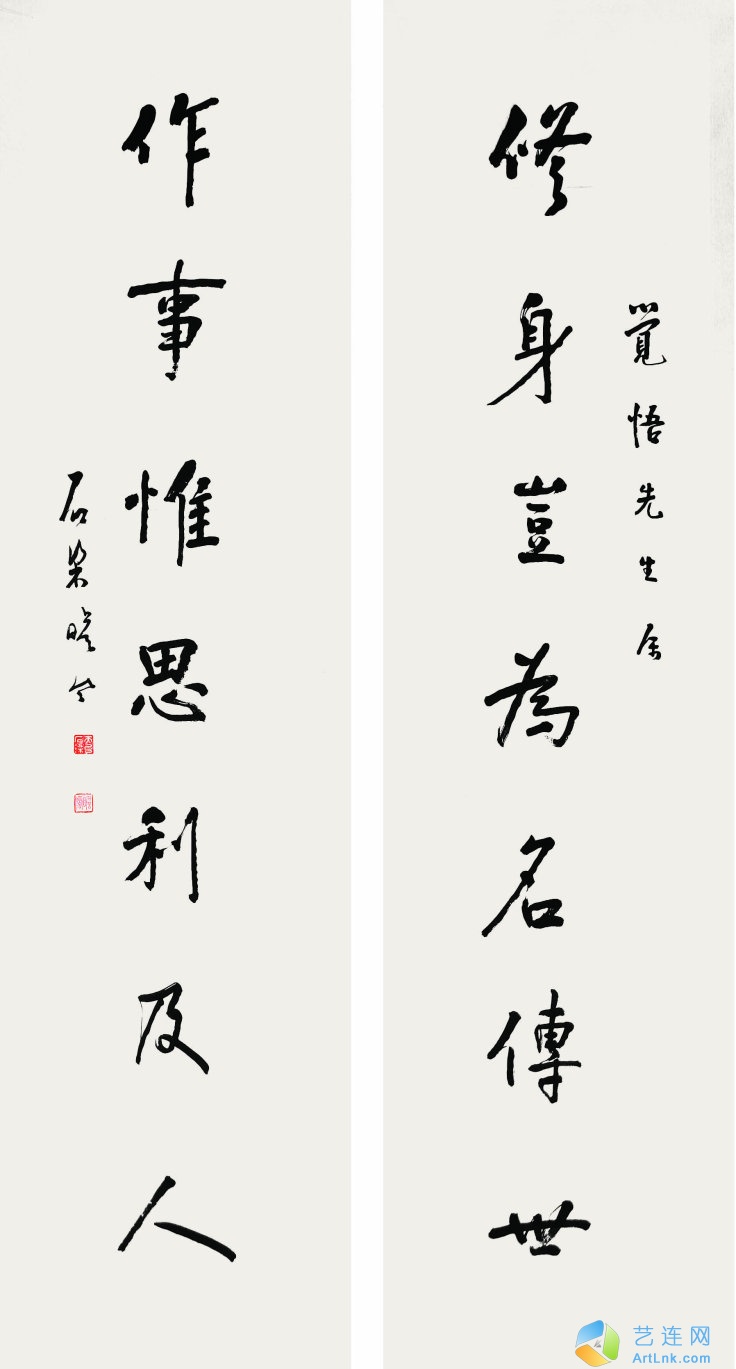 覺悟先生属
修身豈為名傳世
作事惟思利及人
石梁
艺连网
ArtLnk.com